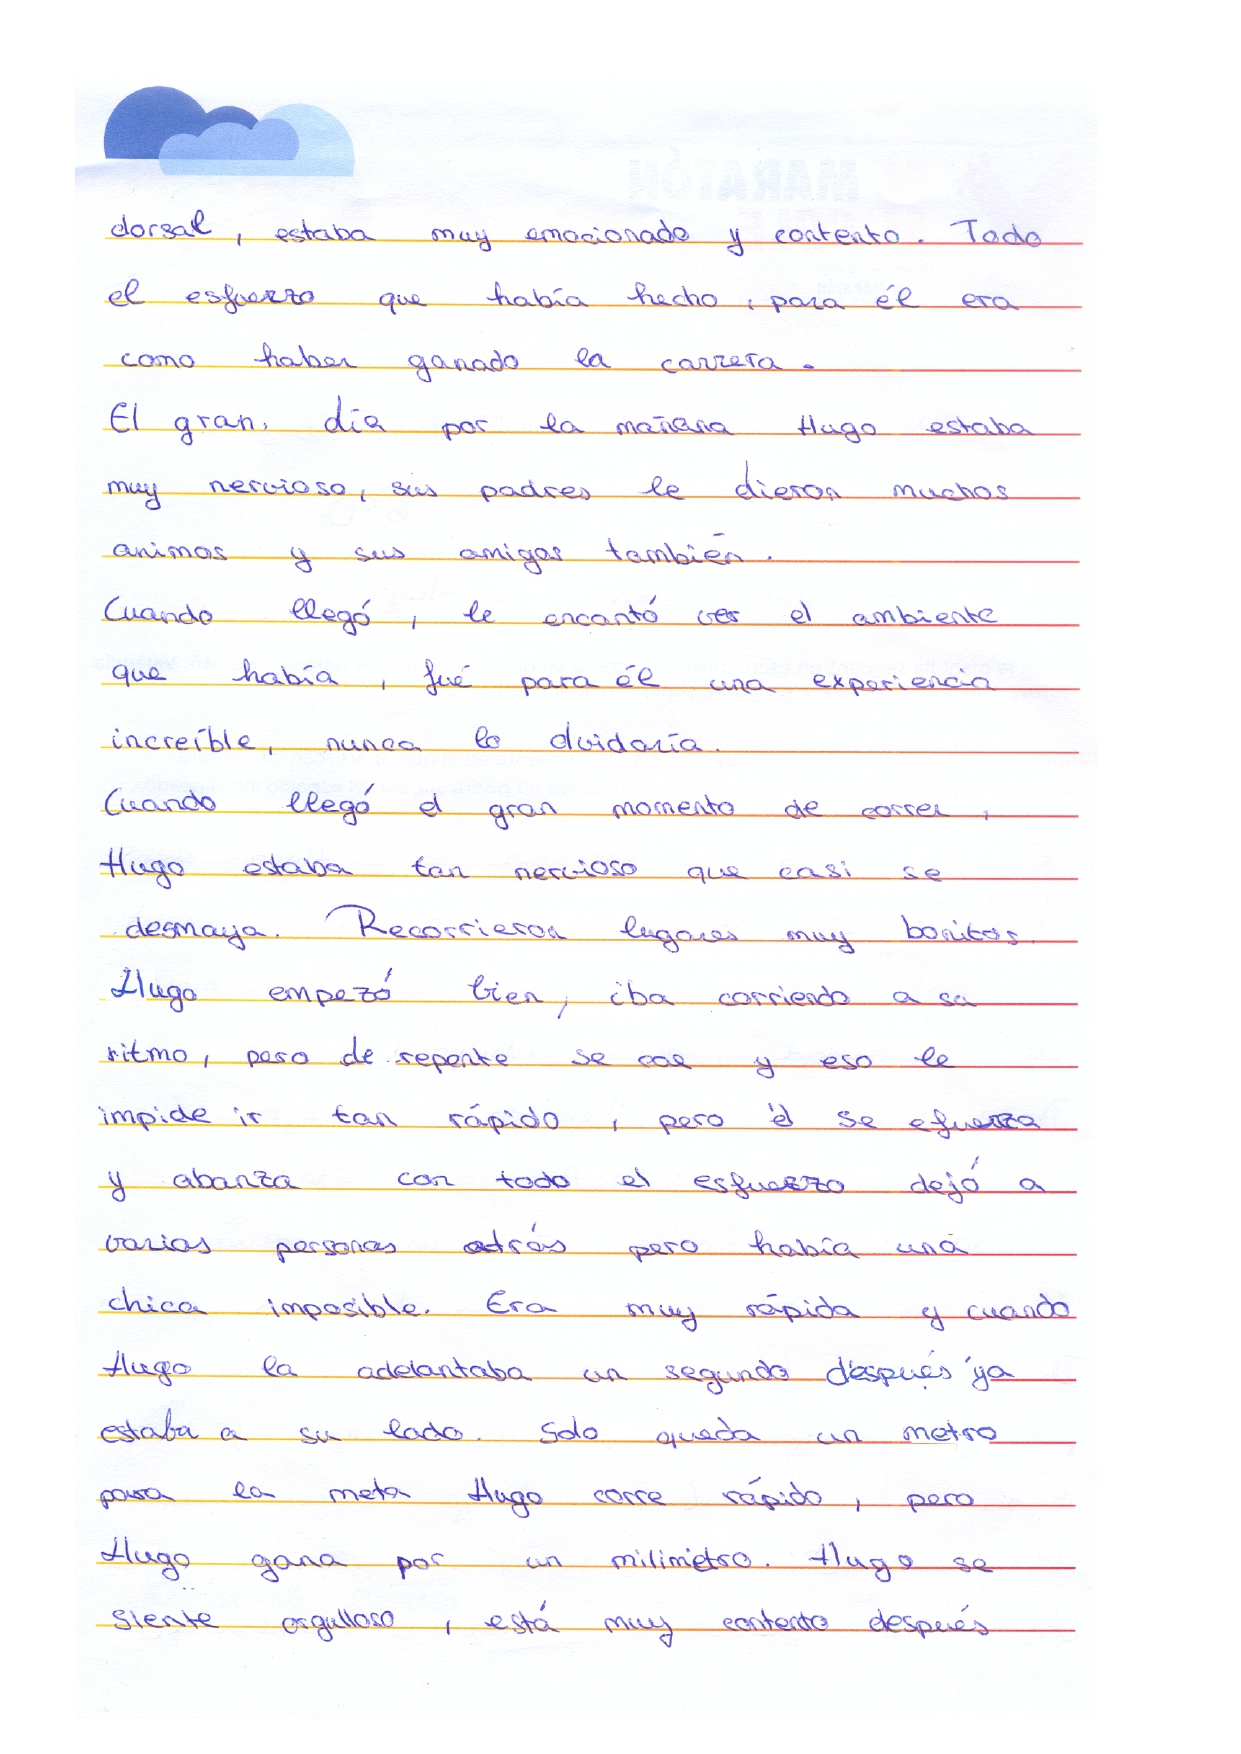 dorsal, estaba muy emocionado y contento. Todo
el esfuerzo que había hecho, para él era
como haber ganado la carrera.
El gran, día por la mañana Hugo estaba
muy nervioso, sus padres le dieron muchos
animos y sus amigos también.
Cuando llegó, le encantó ver el ambiente
que había, fué para él una experiencia
increíble, nunca lo olvidaría.
Cuando llegó el gran momento de correr,
Hugo estaba tan nervioso que casi se
desmaya. Recorrieron lugares muy bonitos.
Hugo empezó bien, iba corriendo a su
ritmo, pero de repente se cae y eso le
impide ir tan rápido, pero él se efuerza
y abanza con todo el esfuerzo dejó a
varias personas atrás pero había una
chica imposible. Era muy rápida y cuando
Hugo la adelantaba un segundo después ya
estaba a su lado. Solo queda un metro
para la meta Hugo corre rápido, pero
Hugo gana por un milimetro. Hugo se
siente orgulloso, está muy contento después